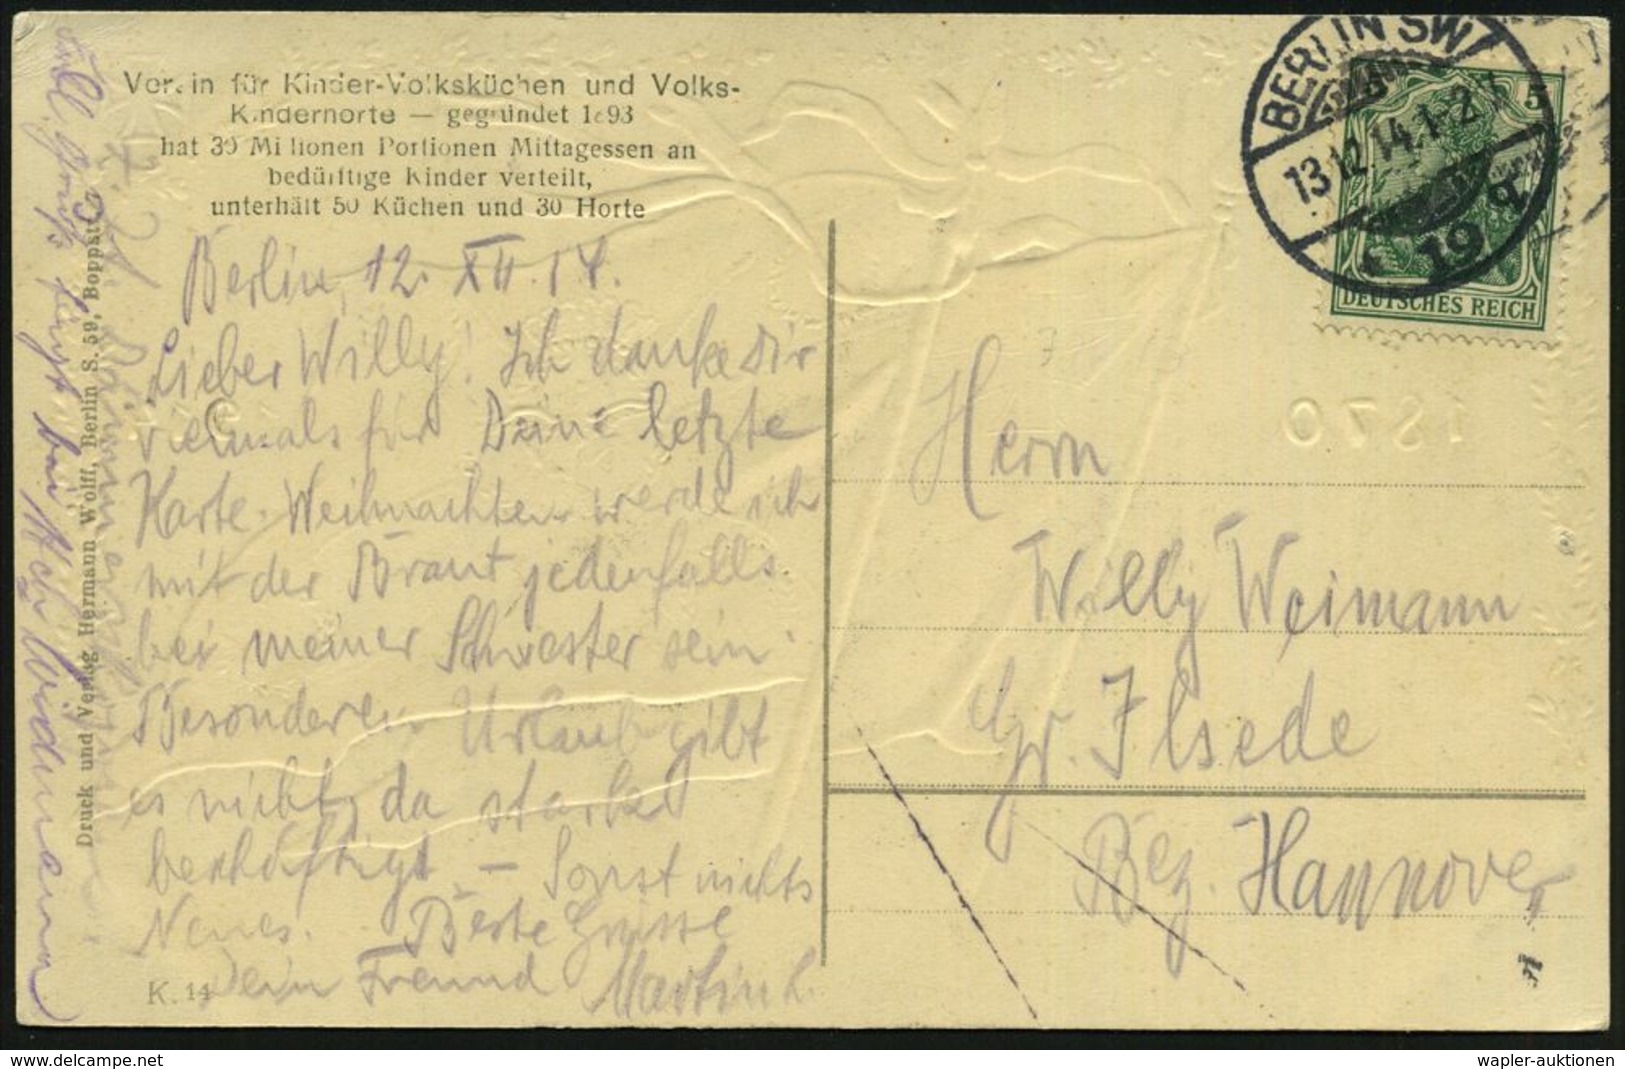 Verein für Kinder-Volksküchen und Volks-
Kinderhorte — gegründet 1893
hat 39 Millionen Portionen Mittagessen an
bedürftige Kinder verteilt,
unterhält 50 Küchen und 30 Horte
Berlin, 12. XII. 14.
Lieber Willy! Ich danke Dir
vielmals für Deine letzte
Karte. Weihnachten werde ich
mit der Braut jedenfalls
bei meiner Schwester sein.
Besonderen Urlaub gibt
es nicht, da stark
beschäftigt — Sonst nichts
Neues. Beste Grüsse
Dein Freund Martin L.
K. 14
Druck und Verlag Hermann Wolff, Berlin S. 59, Boppstr.
BERLIN SW
13.12.14.1-2
19
5
DEUTSCHES REICH
1870
Herrn
Willy Weimann
Gr. Ilsede
Bez. Hannover
wapler-auktionen
www.delcampe.net